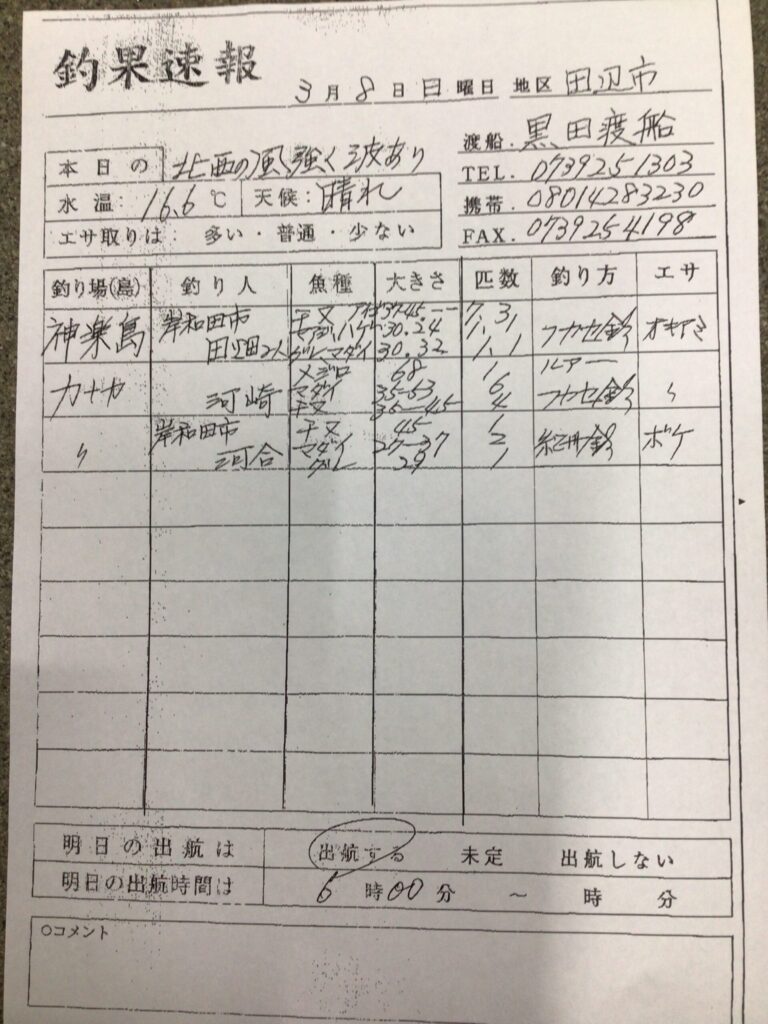 釣果速報
3月8日日曜日 地区 田辺市
渡船. 黒田渡船
TEL. 0739251303
携帯. 08014283230
FAX. 0739254198
本日の 北西の風強く波あり
水温: 16.6℃ 天候: 晴れ
エサ取りは: 多い・普通・少ない
釣り場(島) 釣り人 魚種 大きさ 匹数 釣り方 エサ
神楽島 岸和田市 チヌ 37-45.-- 7.3
30.24 1.1 フカセ釣 オキアミ
田畑2人 グレ.マダイ 30.32 1.1
メジロ 68 1 ルアー
カナカ 河崎 マダイ 35-53 6 フカセ釣 〃
チヌ 35-45 4
岸和田市 チヌ 45 1
〃 マダイ 27-37 2 紀州釣 ボケ
河合 グレ 29 1
明日の出航は 出航する 未定 出航しない
明日の出航時間は 6時00分 ~ 時 分
○コメント